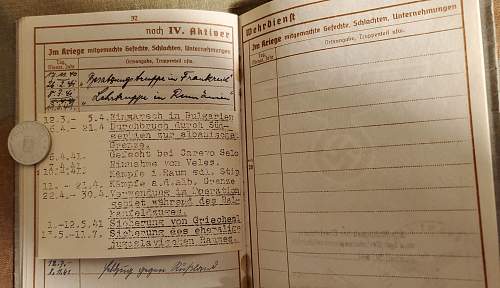 32
noch IV. Aktiver
Im Kriege mitgemachte Gefechte, Schlachten, Unternehmungen
Tag, Monat, Jahr
Ortsangabe, Truppenteil usw.
"Besatzungstruppe in Frankreich"
"Lehrtruppe in Rumänien"
12.3.- 5.4. Einmarsch in Bulgarien
6.4.- 21.4. Durchbruch durch Süd-
serbien zur albanischen
Grenze.
6.4.41. Gefecht bei Carevo Selo
Einnahme von Veles.
Kämpfe i.Raum sdl. Stip
11. - 21.4. Kämpfe a.d.alb. Grenze
22.4.- 30.4. Verwendung im Operation
gebiet während des Bal
kanfeldzuges.
1.-12.5.41 Sicherung von Griechenl
13.5.-11.7. Sicherung des ehemalige
jugoslavischen Raumes.
Feldzug gegen Rußland
Wehrdienst
Im Kriege mitgemachte Gefechte, Schlachten, Unternehmungen
Tag, Monat, Jahr
Ortsangabe, Truppenteil usw.